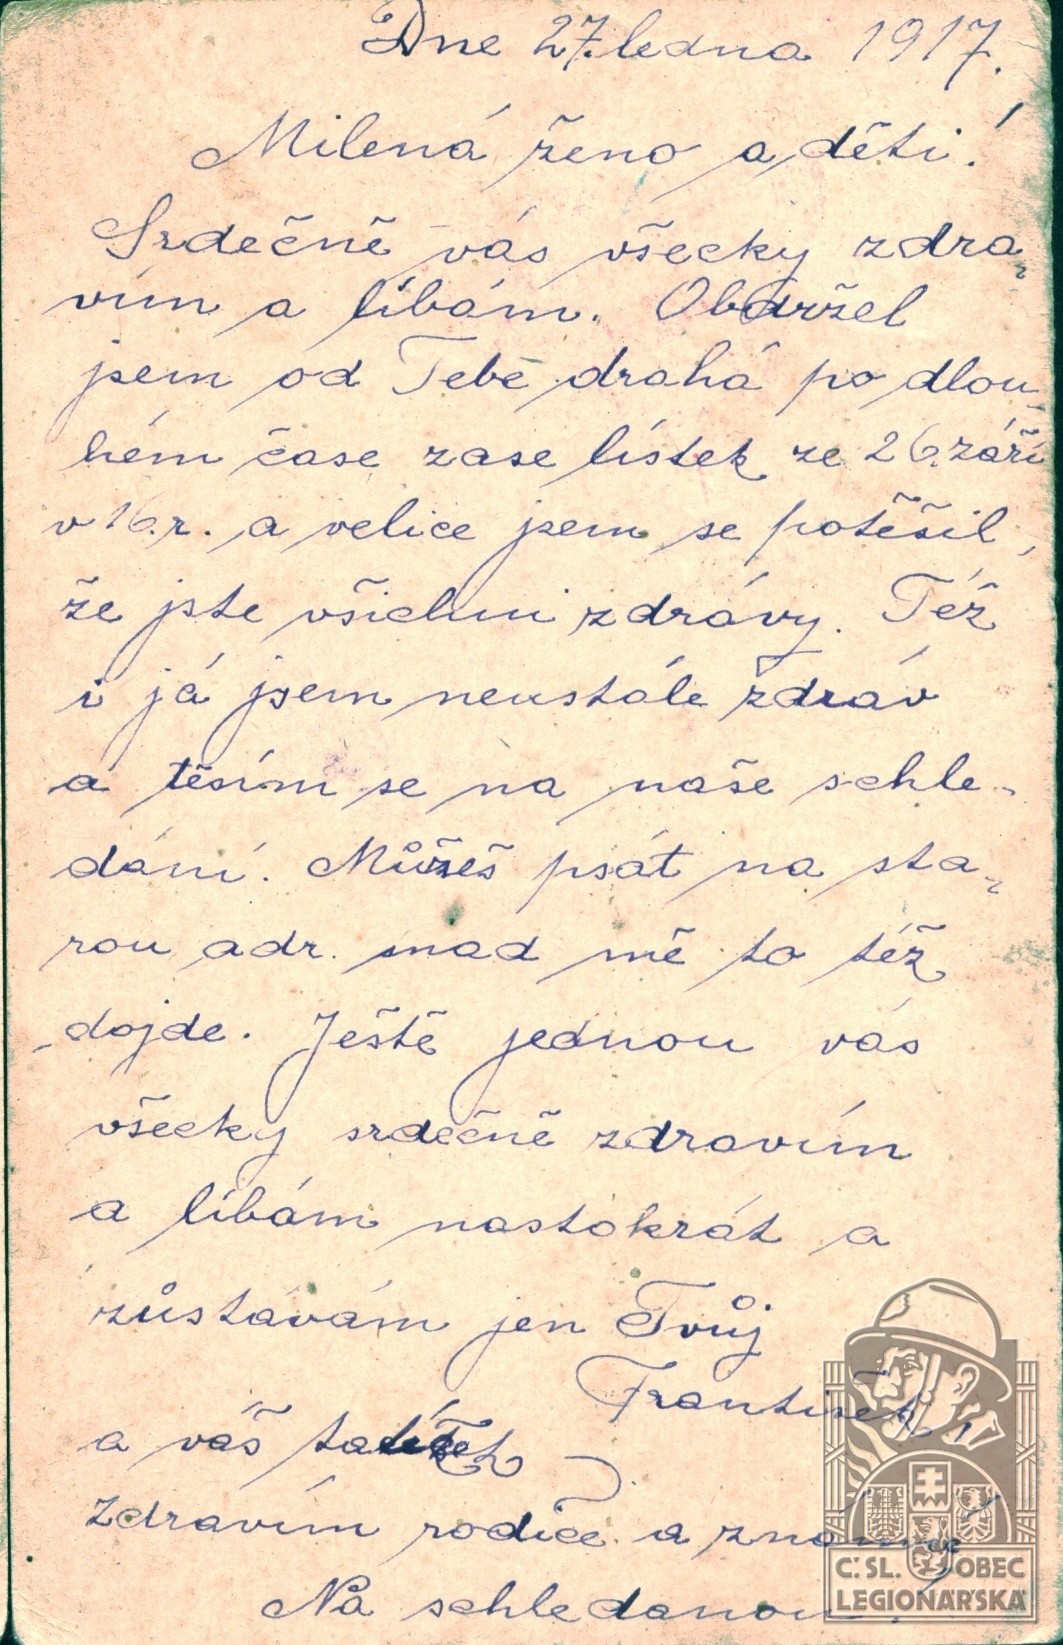 Dne 27. ledna 1917.
Milená ženo a děti!
Srdečně vás všecky zdra-
vím a líbám. Obdržel
jsem od Tebe drahá po dlou-
hém čase zase lístek ze 26. září
v 16. r. a velice jsem se potěšil,
že jste všichni zdrávy. Též
i já jsem neustále zdráv
a těsím se na naše schle-
dání. Můžeš psát na sta-
rou adr. snad mě to též
dojde. Ještě jednou vás
všecky srdečně zdravím
a líbám nastokrát a
zůstávám jen Tvůj
František,
a váš tatíček
zdravím rodiče a známé
Na schledanou.
Č.SL. OBEC
LEGIONÁŘSKÁ